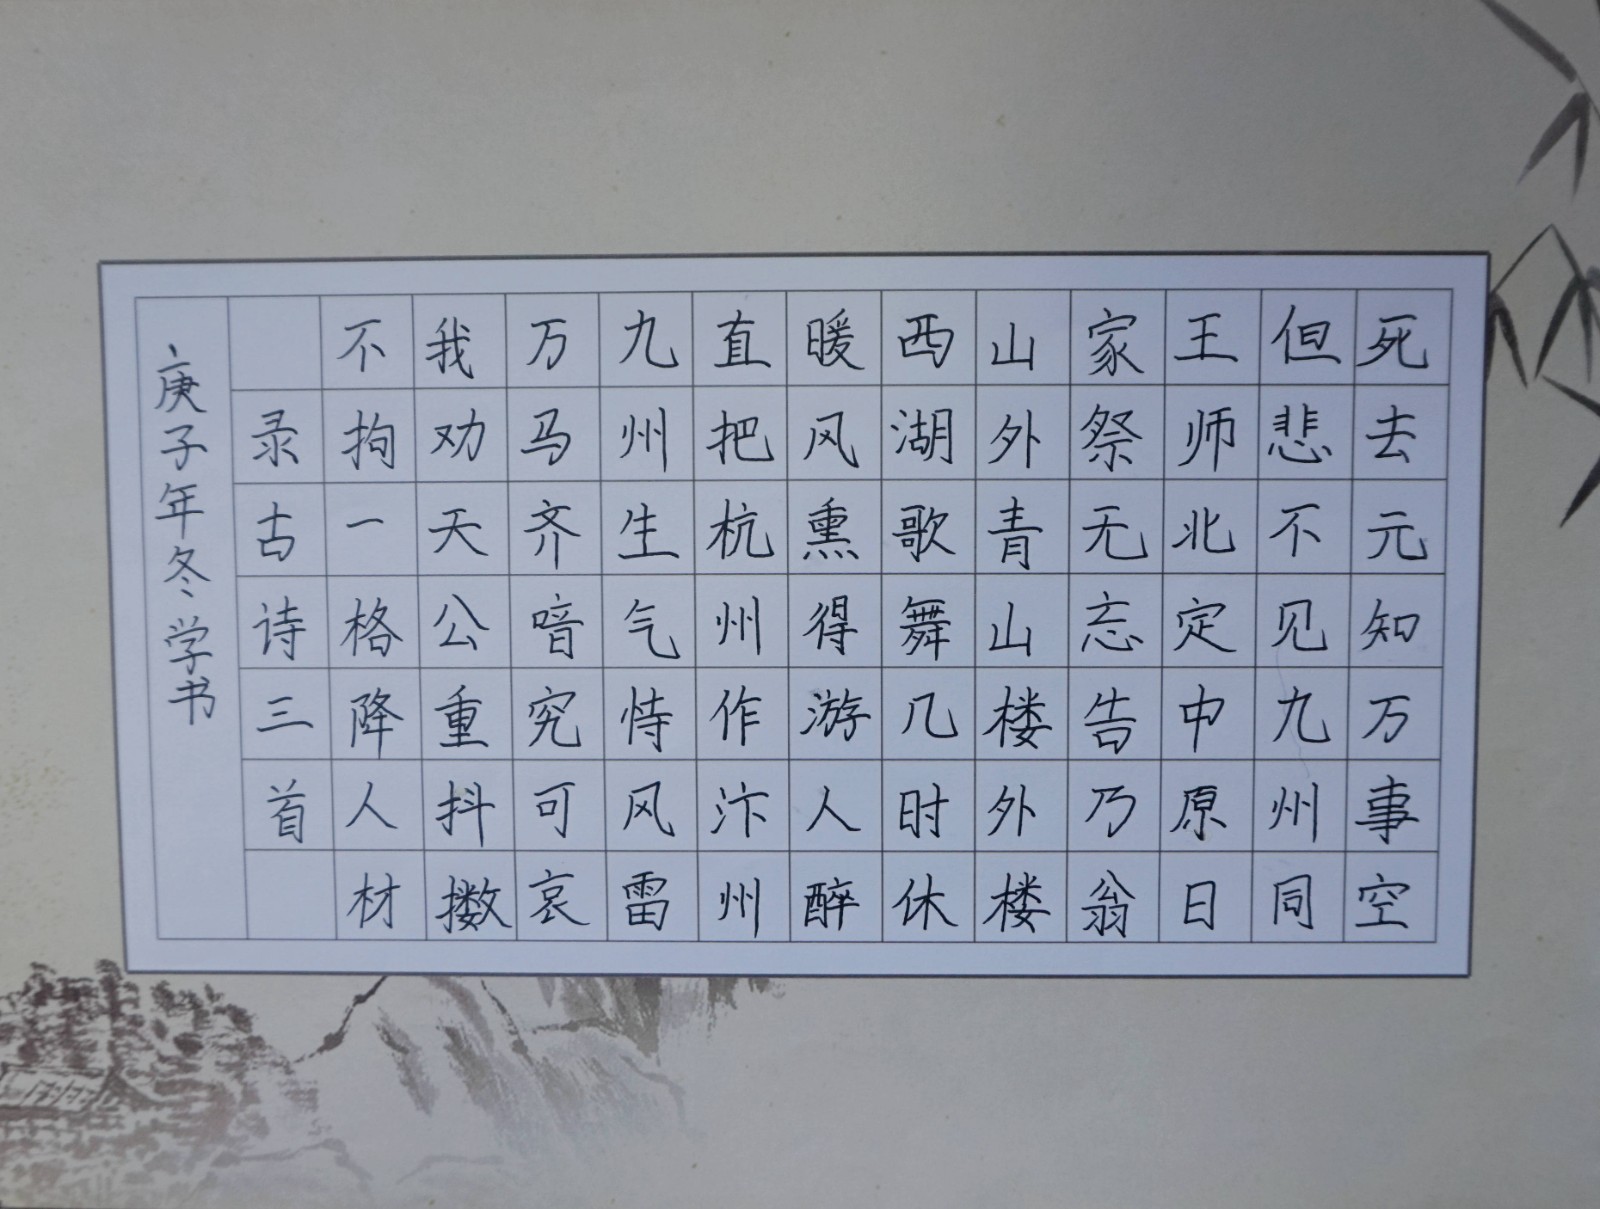 死去元知万事空
但悲不见九州同
王师北定中原日
家祭无忘告乃翁
山外青山楼外楼
西湖歌舞几时休
暖风熏得游人醉
直把杭州作汴州
九州生气恃风雷
万马齐喑究可哀
我劝天公重抖擞
不拘一格降人材
录古诗三首
庚子年冬学书